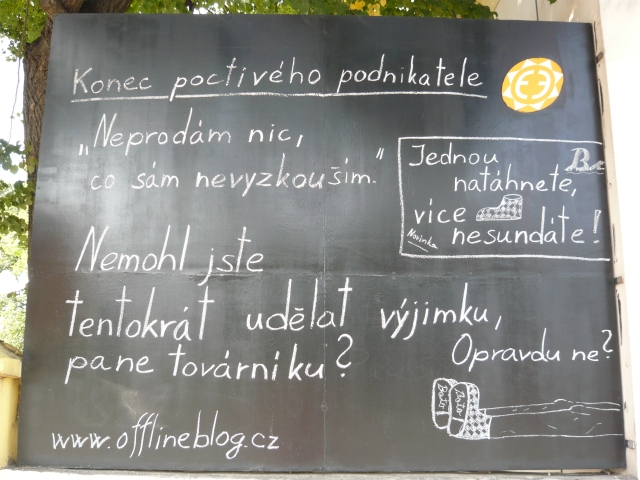 Konec poctivého podnikatele
„Neprodám nic,
co sám nevyzkouším."
Jednou
natáhnete,
více
nesundáte!
Novinka
Nemohl jste
tentokrát udělat výjimku,
pane továrníku?
Opravdu ne?
www.offlineblog.cz